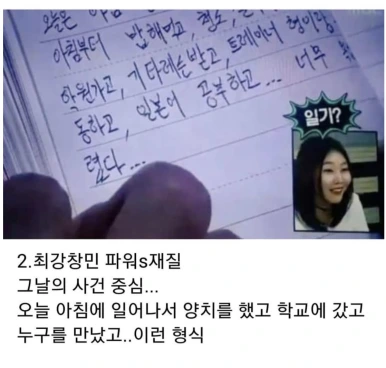 오늘은 아침
아침부터 밥해먹고, 청소,
학원가고, 기타레슨받고, 트레이너 형이랑
동하고, 일본어 공부하고... 너무
렸다...
일기?
2.최강창민 파워s재질
그날의 사건 중심...
오늘 아침에 일어나서 양치를 했고 학교에 갔고
누구를 만났고..이런 형식